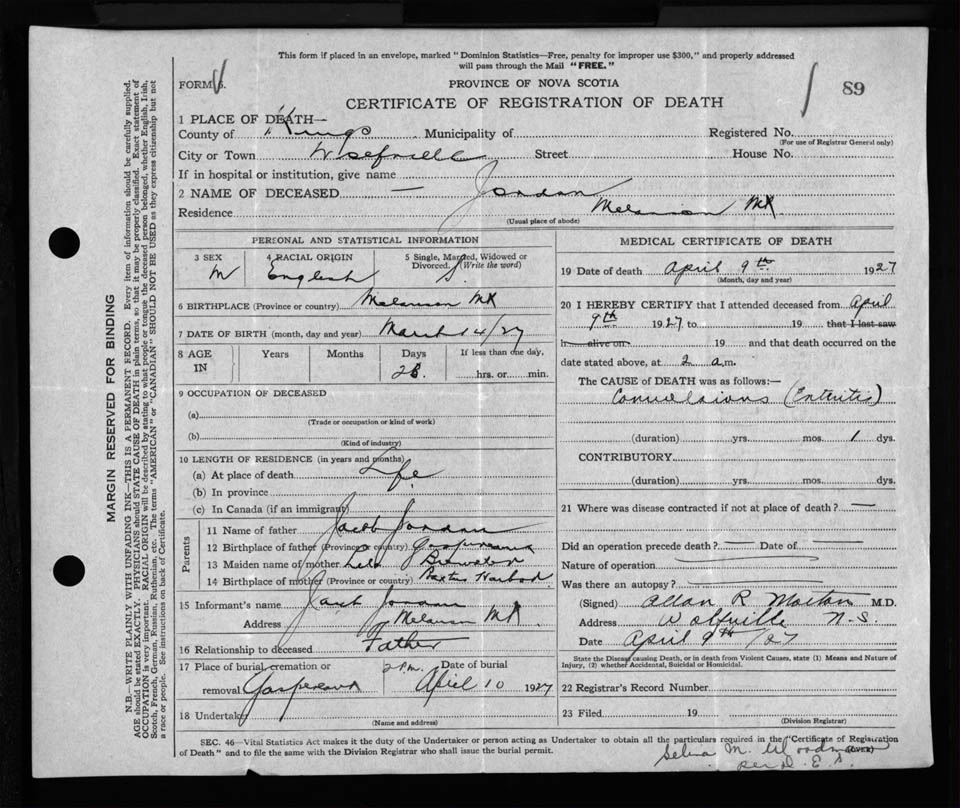 This form if placed in an envelope, marked "Dominion Statistics—Free, penalty for improper use $300," and properly addressed
will pass through the Mail "FREE."
FORM 6.
PROVINCE OF NOVA SCOTIA
89
CERTIFICATE OF REGISTRATION OF DEATH
1 PLACE OF DEATH—
County of Kings Municipality of Registered No.
(For use of Registrar General only)
City or Town Street House No.
If in hospital or institution, give name
2 NAME OF DECEASED — Jordan
Residence Melanson Mt
(Usual place of abode)
PERSONAL AND STATISTICAL INFORMATION
3 SEX 4 RACIAL ORIGIN 5 Single, Married, Widowed or
Divorced. (Write the word)
M English S.
6 BIRTHPLACE (Province or country) Melanson Mt
7 DATE OF BIRTH (month, day and year) March 14/27
8 AGE IN Years Months Days If less than one day,
28. hrs. or min.
9 OCCUPATION OF DECEASED
(a)
(Trade or occupation or kind of work)
(b)
(Kind of industry)
10 LENGTH OF RESIDENCE (in years and months)
(a) At place of death Life
(b) In province
(c) In Canada (if an immigrant)
Parents
11 Name of father Jacob Jordan
12 Birthplace of father (Province or country) Gaspereau
13 Maiden name of mother
14 Birthplace of mother (Province or country)
15 Informant's name Jacob Jordan
Address Melanson Mt
16 Relationship to deceased Father
17 Place of burial, cremation or 2 P.M. Date of burial
removal Gaspereau April 10 1927
18 Undertaker
(Name and address)
MEDICAL CERTIFICATE OF DEATH
19 Date of death April 9th 1927
(Month, day and year)
20 I HEREBY CERTIFY that I attended deceased from April
9th 1927 to 19 that I last saw
h alive on 19 and that death occurred on the
date stated above, at 2 a.m.
The CAUSE of DEATH was as follows:—
Convulsions (Entritis)
(duration) yrs. mos. 1 dys.
CONTRIBUTORY
(duration) yrs. mos. dys.
21 Where was disease contracted if not at place of death? —
Did an operation precede death? — Date of —
Nature of operation
Was there an autopsy?
(Signed) Allan R M.D.
Address Wolfville N.S.
Date April 9th /27
State the Disease causing Death, or in death from Violent Causes, state (1) Means and Nature of
Injury, (2) whether Accidental, Suicidal or Homicidal.
22 Registrar's Record Number
23 Filed 19
(Division Registrar)
SEC. 46—Vital Statistics Act makes it the duty of the Undertaker or person acting as Undertaker to obtain all the particulars required in the "Certificate of Registration
of Death" and to file the same with the Division Registrar who shall issue the burial permit. (OVER)
Selina M. Woodman
per D. E.
MARGIN RESERVED FOR BINDING
N.B.—WRITE PLAINLY WITH UNFADING INK—THIS IS A PERMANENT RECORD. Every item of information should be carefully supplied.
AGE should be stated EXACTLY. PHYSICIANS should STATE CAUSE OF DEATH in plain terms, so that it may be properly classified. Exact statement of
OCCUPATION is very important. RACIAL ORIGIN will be described by stating to what people or tongue the deceased person belonged, whether English, Irish,
Scotch, French, German, Russian, Ruthenian, etc. The terms "AMERICAN" or "CANADIAN" SHOULD NOT BE USED as they express citizenship but not
a race or people. See instructions on back of Certificate.